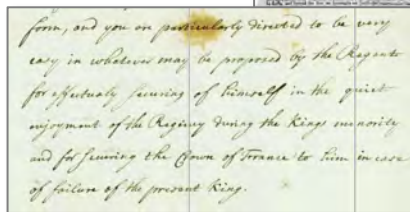 form, and you are particularly directed to be very
easy in whatever may be proposed by the Regent
for effectualy securing of himself in the quiet
enjoyment of the Regency during the Kings minority
and for securing the Crown of France to him in case
of failure of the present King.